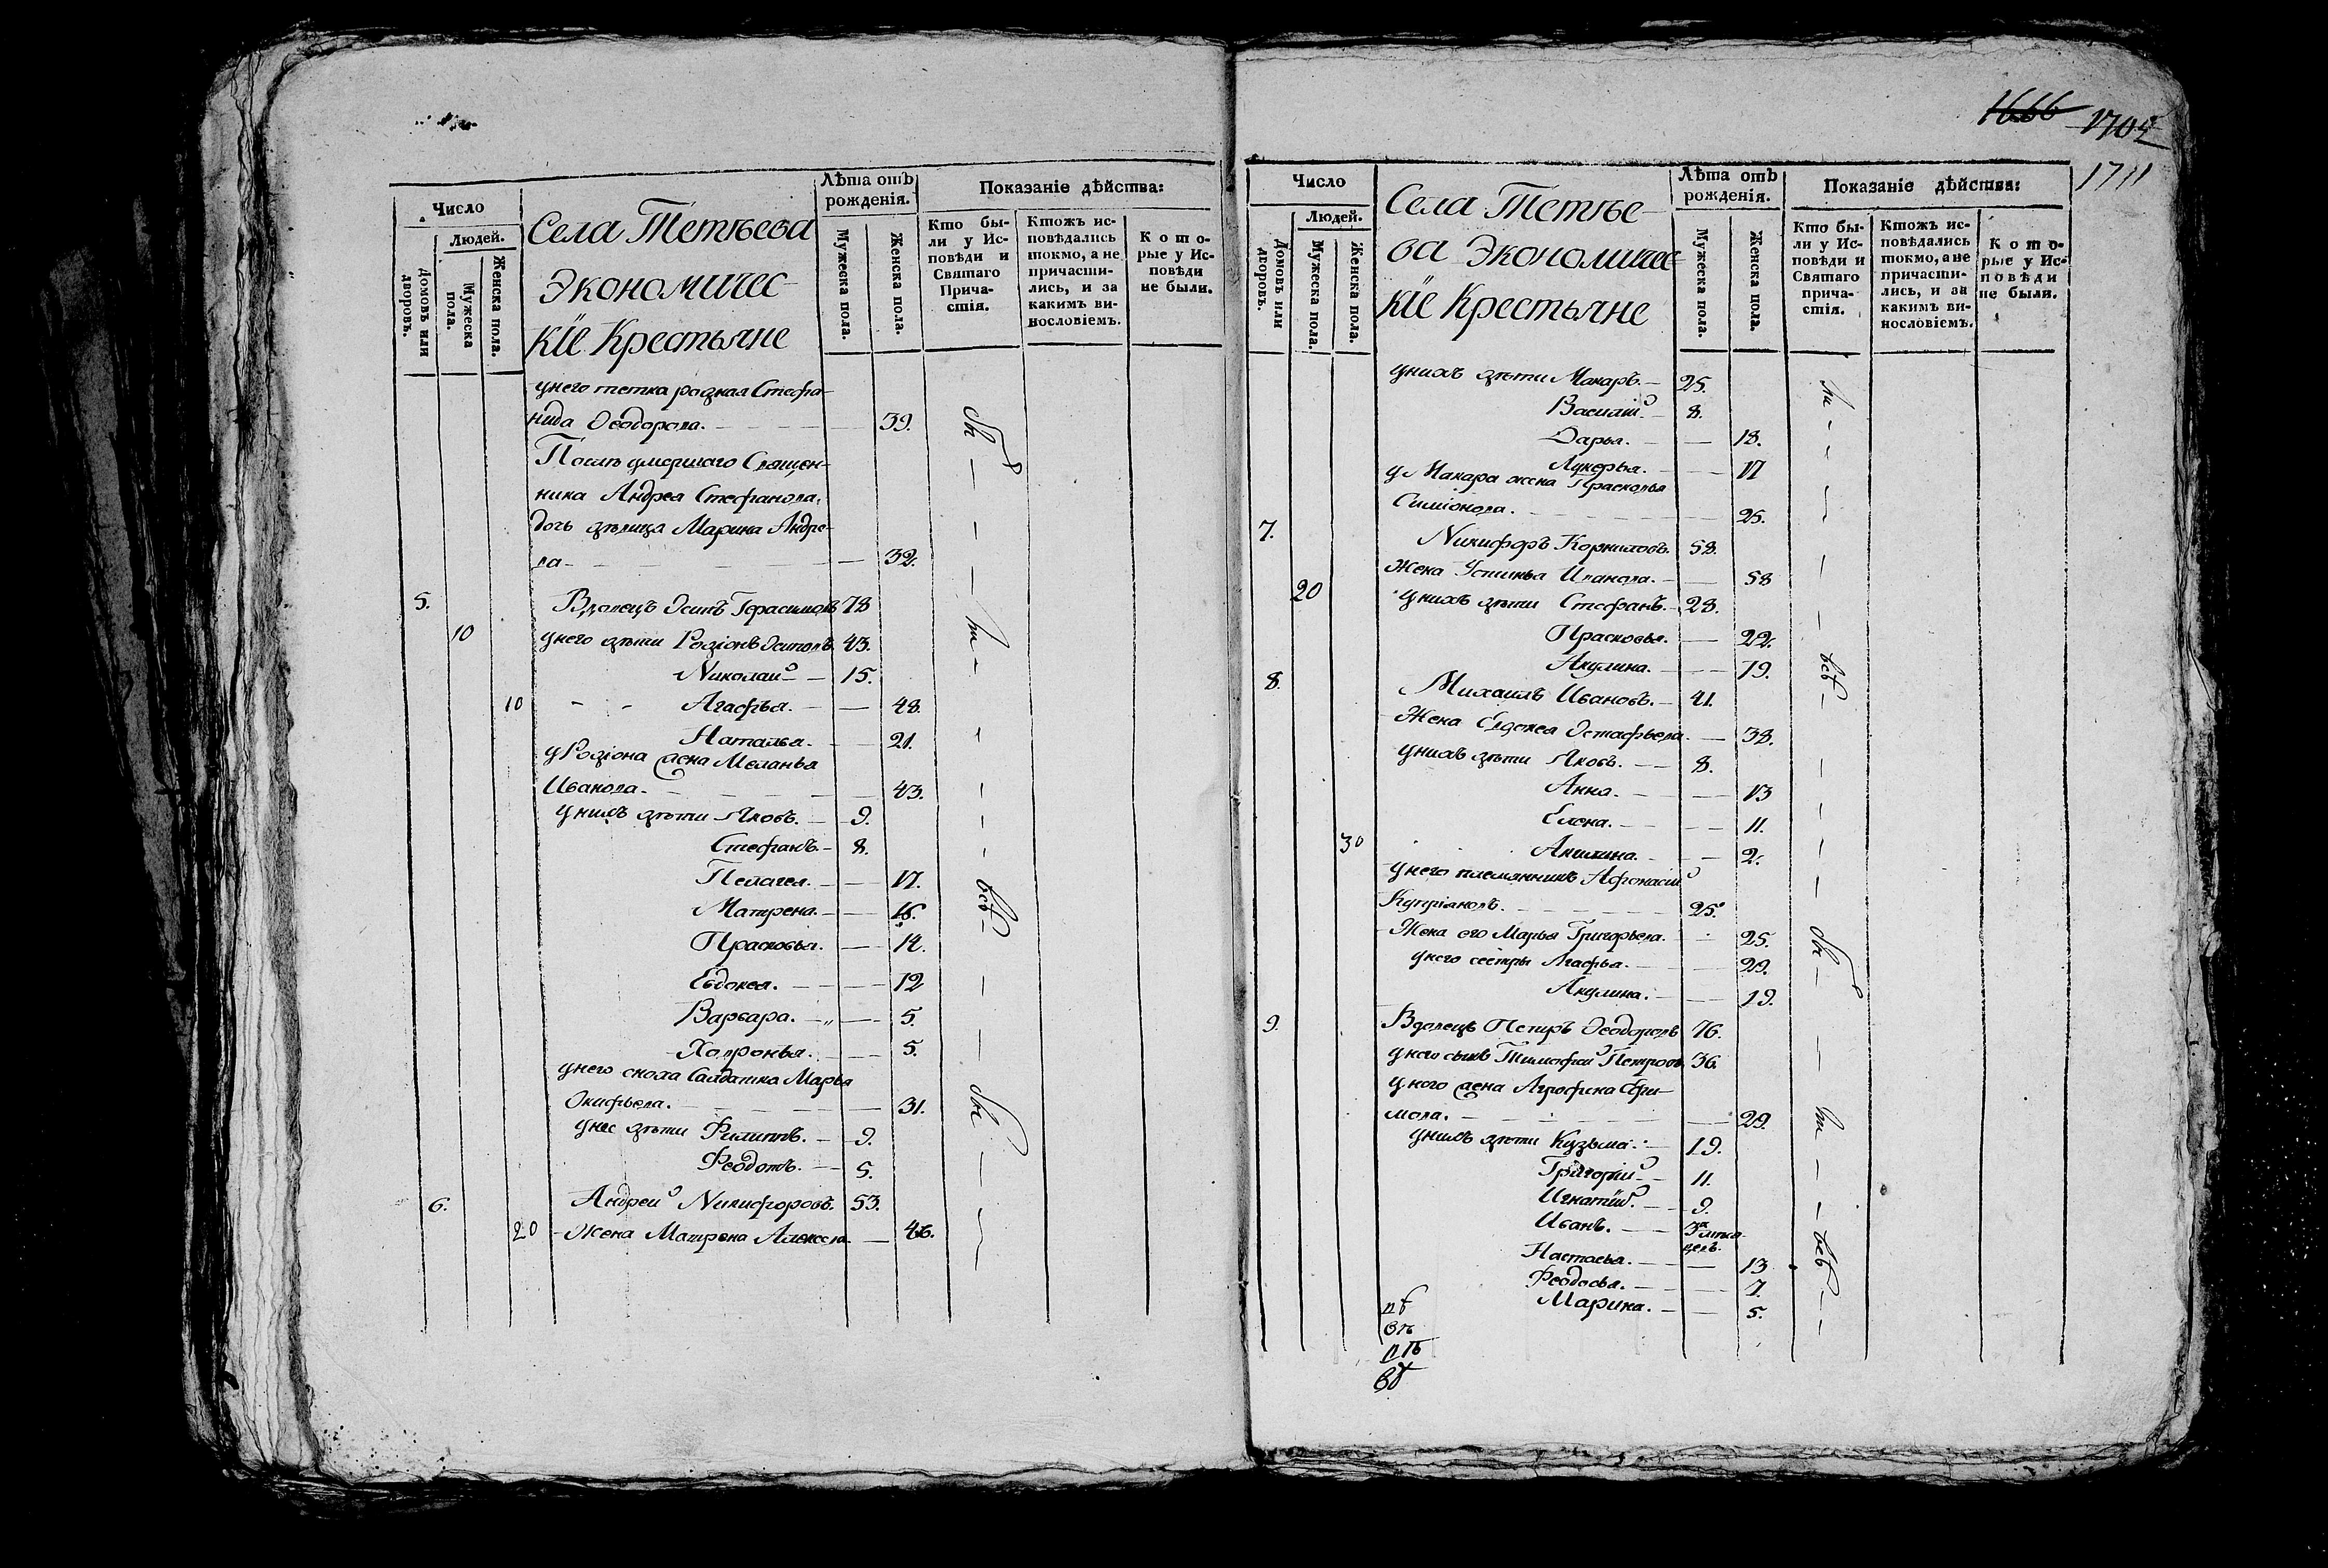 Число
Людей.
Домовъ или дворовъ.
Мужеска пола.
Женска пола.
Села Тетѣева
Экономичес-
кїе Крестьяне
Лѣта отъ рожденія.
Мужеска пола.
Женска пола.
Показаніе дѣйства:
Кто бы-
ли у Ис-
повѣди и
Святаго
Прича-
стія.
Ктожъ ис-
повѣдались
токмо, а не
причасти-
лись, и за
какимъ ви-
нословіемъ.
Кото-
рые у Ис-
повѣди
не были.
унего тетка родная Стефа-
нида Ѳеодорова. 39.
Послѣ умершаго Священ-
ника Андрея Стефанова.
дочь дѣвица Марина Андре-
ва 32.
5. Вдовецъ Осипъ Герасимовъ 78
10 унего дѣти Родіонъ Осиповъ 43.
Николай 15.
10 Агафья. 48.
Наталья. 21.
у Родіона жена Меланья
Иванова. 43.
унихъ дѣти Яковъ. 9.
Стефанъ. 8.
Пелагея. 17.
Матрена. 16.
Прасковья. 14.
Евдокея. 12
Варвара. 5.
Хавронья. 5.
унего сноха Салдатка Марья
Окифьева. 31.
унее дѣти Филиппъ. 9.
Феодотъ. 5.
6. Андрей Никифоровъ. 53.
20 Жена Матрена Алексева 46.
1666
1705
1711
Число
Людей.
Домовъ или дворовъ.
Мужеска пола.
Женска пола.
Села Тетѣе-
ва Экономичес-
кїе Крестьяне
Лѣта отъ рожденія.
Мужеска пола.
Женска пола.
Показаніе дѣйства:
Кто бы-
ли у Ис-
повѣди и
Святаго
прича-
стія.
Ктожъ ис-
повѣдались
токмо, а не
причасти-
лись, и за
какимъ ви-
нословіемъ.
Кото-
рые у Ис-
повѣди
не были.
унихъ дѣти Макаръ. 25.
Василій. 8.
Дарья. 18.
Лукерья. 17
у Макара жена Прасковья
Симіонова. 25.
7. Никифоръ Корниловъ. 58.
Жена Устинья Иванова. 58
20 унихъ дѣти Стефанъ. 28.
Прасковья. 22.
Акулина. 19.
8. Михаилъ Ивановъ. 41.
Жена Евдокея Остафьева. 38.
унихъ дѣти Яковъ. 8.
Анна. 13
Елена. 11.
30 Акилина. 2.
унего племянникъ Афонасій
Купріановъ. 25.
Жена его Марья Григорьева. 25.
унего сестры Агафья. 29.
Акулина. 19.
9. Вдовецъ Петръ Ѳеодоровъ 76.
унего сынъ Тимофей Петровъ 36.
унего жена Аграфена Ефи-
мова. 29.
унихъ дѣти Кузьма. 19.
Григорій 11.
Игнатїй. 9.
Иванъ.
Настасья. 13
Феодосья. 7.
Марина. 5.